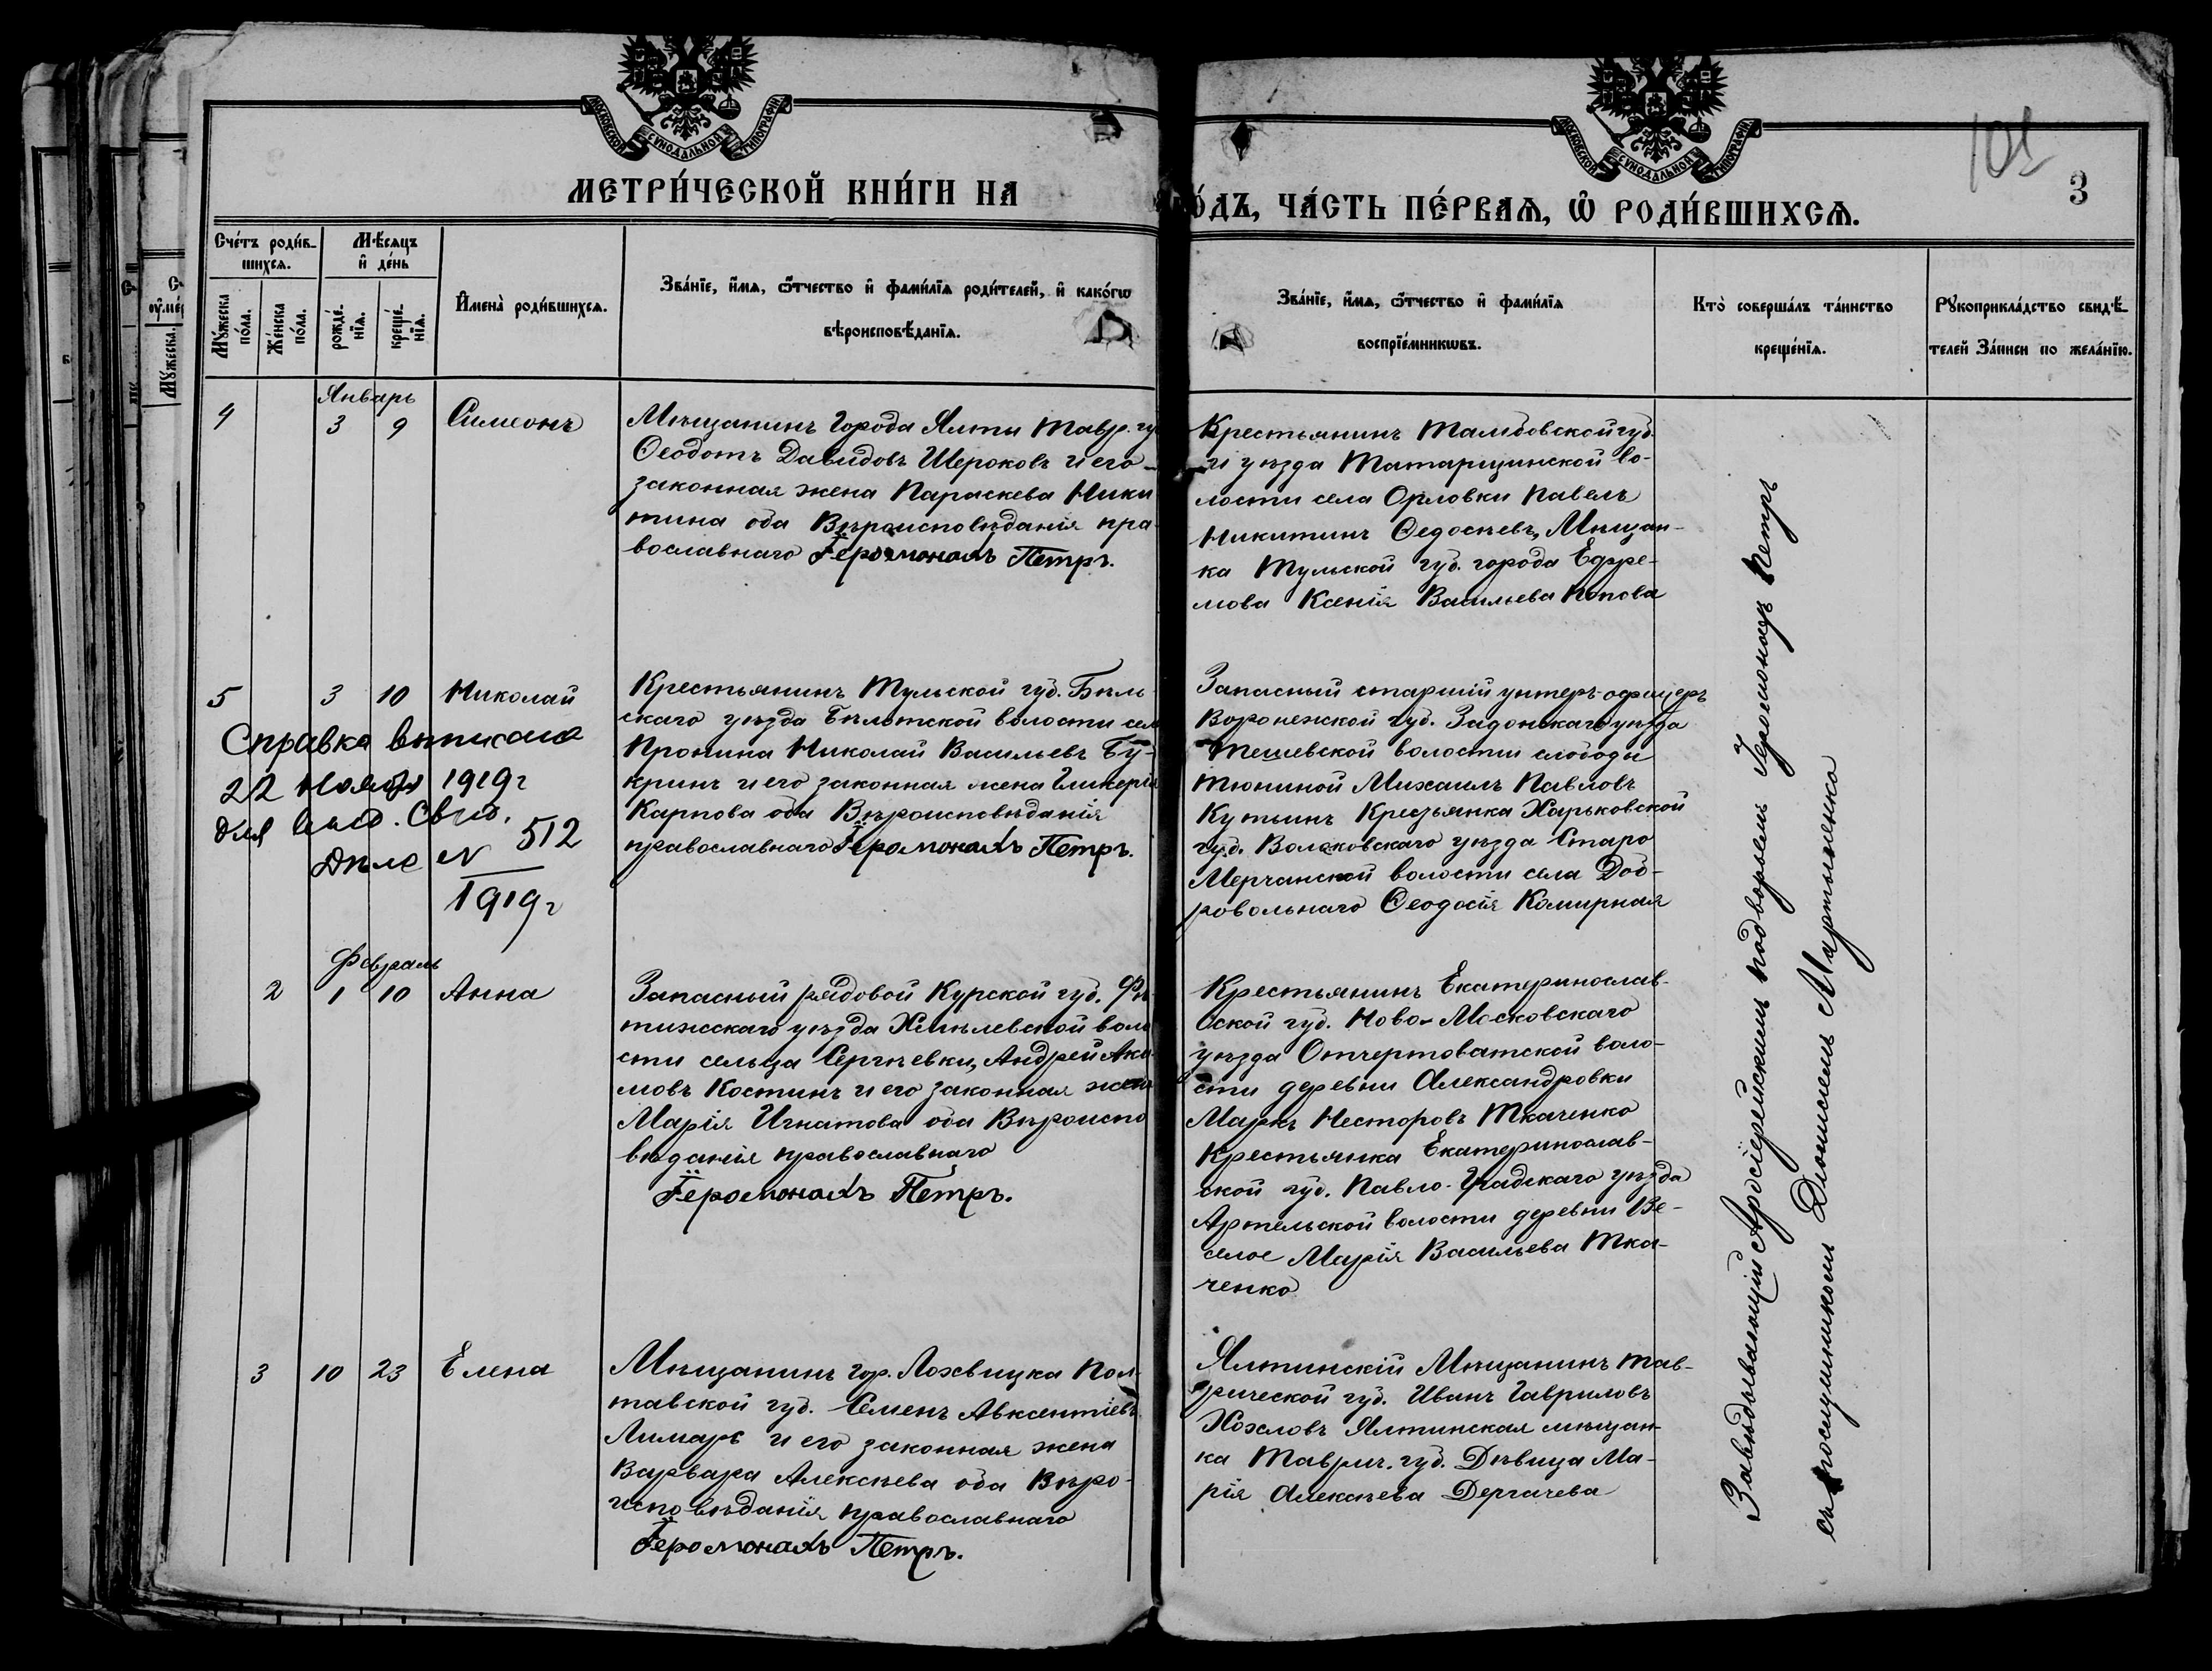 МОСКОВСКОЙ СѴНОДАЛЬНОЙ ТИПОГРАФІИ
МОСКОВСКОЙ СѴНОДАЛЬНОЙ ТИПОГРАФІИ
101
3
МЕТРИ́ЧЕСКОЙ КНИ́ГИ НА
О́ДЪ, ЧА́СТЬ ПЕ́РВАѦ, Ѽ РОДИ́ВШИХСѦ.
Сче́тъ роди́в-
шихсѧ.
Мꙋ́жеска по́ла.
Же́нска по́ла.
Мѣ́сѧцъ
и҆ де́нь
рожде́-
нїѧ.
креще́-
нїѧ.
И҆мена̀ роди́вшихсѧ.
Зва́нїе, и҆́мѧ, ѻ҆́тчество и҆ фами́лїѧ роди́телей, и҆ како́гѡ
вѣроисповѣ́данїѧ.
Зва́нїе, и҆́мѧ, ѻ҆́тчество и҆ фами́лїѧ
воспрїе́мникѡвъ.
Кто̀ соверша́лъ та́инство
креще́нїѧ.
Рꙋкоприкла́дство свидѣ́-
телей за́писи по жела́нїю.
Январь
4 3 9 Симеонъ
Мѣщанинъ Города Ялты Тавр. гу
Ѳеодотъ Давидовъ Шероковъ и его
законная жена Параскева Ники
тина оба Вѣроисповѣданія пра-
вославнаго Іеромонахъ Петръ.
Крестьянинъ Тамбовской губ.
и уѣзда Татарщинской во-
лости села Орловки Павелъ
Никитинъ Ѳедосѣевъ, Мѣщан-
ка Тульской губ. города Ефре-
мова Ксенія Васильева Попова
5 3 10 Николай
Справка выписана
22 Ноября 1919г
для выд. Свид.
Дѣло N 512
1919г
Крестьянинъ Тульской губ. Бѣль
скаго уѣзда Бѣлотской волости сел
Пронина Николай Васильевъ Бу-
кринъ и его законная жена Гликерія
Карпова оба Вѣроисповѣданія
православнаго Іеромонахъ Петръ.
Запасный старшій унтеръ-офицеръ
Воронежской губ. Задонскаго уѣзда
Тешевской волости слободы
Тюниной Михаилъ Павловъ
Кутьинъ Крестьянка Харьковской
губ. Волоковскаго уѣзда Старо
Мерчанской волости села Доб-
ровольнаго Ѳеодосія Комирная
Февраль
2 1 10 Анна
Запасный рядовой Курской губ. Фа-
тижскаго уѣзда Хмѣлевской воло
сти сельца Сергѣевки, Андрей Аки-
мовъ Костинъ и его законная жена
Марія Игнатова оба Вѣроиспо
вѣданія православнаго
Іеромонахъ Петръ.
Крестьянинъ Екатеринослав-
ской губ. Ново-Московскаго
уѣзда Очертоватской воло-
сти деревни Александровки
Маркъ Несторовъ Ткаченко
Крестьянка Екатеринослав-
ской губ. Павло-Градскаго уѣзда
Артельской волости деревни Ве-
селое Марія Васильева Тка-
ченко
3 10 23 Елена
Мѣщанинъ гор. Лохвицка Пол-
тавской губ. Семенъ Авксентіевъ
Лимарь и его законная жена
Варвара Алексѣева оба Вѣро-
исповѣданія православнаго
Іеромонахъ Петръ.
Ялтинскій Мѣщанинъ Тав-
рической губ. Иванъ Гавриловъ
Хохловъ Ялтинская мѣщан-
ка Таврич. губ. Дѣвица Ма-
рія Алексѣева Дергачева
Завѣдывающій Архіерейскимъ подворьемъ Іеромонахъ Петръ
съ послушникомъ Діонисіемъ Мартыненко